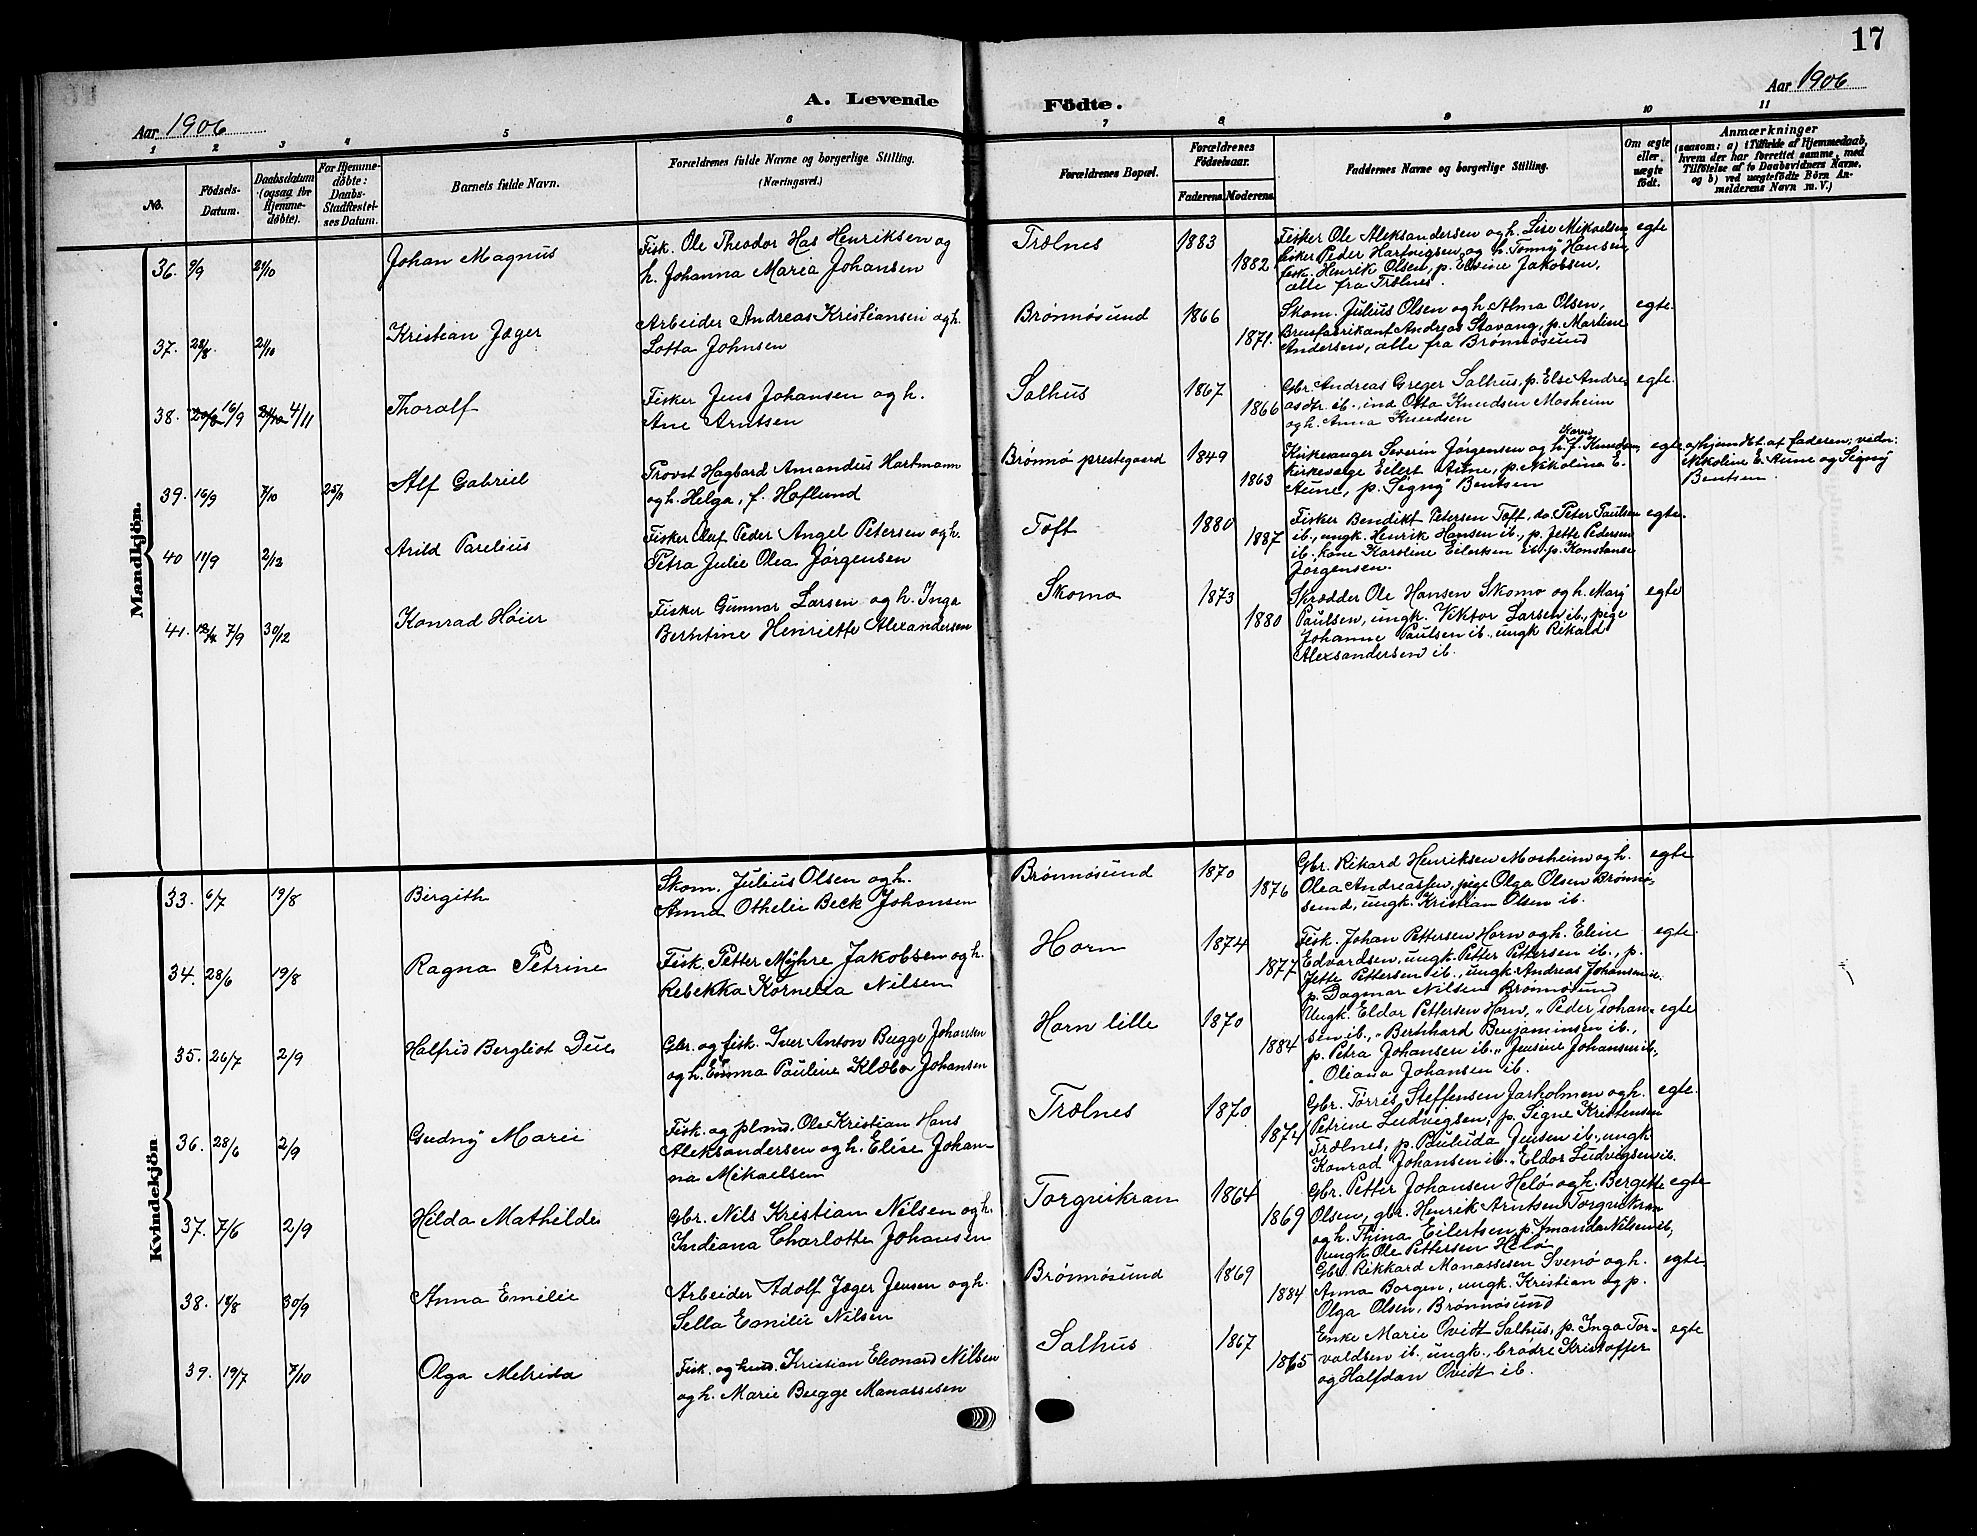 17
A. Levende Födte.
Aar 1906
Aar 1906
1 2 3 4 5 6 7 8 9 10 11
No.
Födsels-Datum.
Daabsdatum (ogsaa for Hjemmedøbte).
For Hjemmedøbte: Daabs Stadfæstelses Datum.
Barnets fulde Navn.
Forældrenes fulde Navne og borgerlige Stilling.
(Næringsvei.)
Forældrenes Bopæl.
Forældrenes Fødselsaar.
Faderens. Moderens.
Faddernes Navne og borgerlige Stilling.
Om ægte eller uægte født.
Anmærkninger
(saasom: a) i Tilfælde af Hjemmedaab, hvem der har forrettet samme, med Tilføielse af to Daabsvidners Navne, og b) ved uægtefødte Børn Anmelderens Navn m. V.)
Mandkjön.
36. 9/9 21/10 Johan Magnus
Fisk. Ole Theodor Has Henriksen og
h. Johanna Maria Johansen
Trælnes 1883 1882
Fisker Ole Aleksandersen og h. Lise Mikaelsen
fisker Peder Hartvigsen og h. Tonny Hansen
fisk. Henrik Olsen, p. Elvine Jakobsen,
alle fra Trælnes.
egte
37. 28/8. 21/10 Kristian Jæger
Arbeider Andreas Kristiansen og h.
Lotta Johnsen
Brønnøsund 1866 1871.
Skom. Julius Olsen og h. Alma Olsen,
Brusfabrikant Andreas Stavang, p. Martine
Andersen, alle fra Brønnøsund
egte
38. 16/9 4/11 Thoralf
Fisker Jens Johansen og h.
Ane Arntsen
Salhus 1867 1866
Gbr. Andreas Greger Salhus, p. Else Andre
asdtr. ib., ind. Otto Knudsen Mosheim
og h. Anna Knudsen
egte.
39. 16/9 7/10 25/11 Alf Gabriel
Provst Hagbard Amandus Hartmann
og h. Helga, f. Hoflund
Brønnø prestegaard 1849 1863
Karen
Kirkesanger Severin Jørgensen og h. f. Knudsen,
kirkeverge Eilert Aune, p. Nikoline E.
Aune, p. Signy Bentsen
egte
a) hjemdbt. af faderen; vidn:
Nikoline E. Aune og Signy
Bentsen.
40 11/9 2/12 Arild Parelius
Fisker Oluf Peder Angel Petersen og h.
Petra Julie Olea Jørgensen
Toft 1880 1887
Fisker Bendikt Petersen Toft, do. Peter Paulsen
ib., ungk. Henrik Hansen ib., p. Jette Pedersen
ib., kone Karoline Eilertsen ib. p. Konstanse
Jørgensen.
egte.
41. 7/9 30/12 Konrad Høier
Fisker Gunnar Larsen og h. Inga
Berntine Henriette Alexandersen
Skomo 1873 1880
Skrædder Ole Hansen Skomo og h. Mary
Paulsen, ungk. Viktor Larsen ib., pige
Johanne Paulsen ib., ungk Rikard
Alexsandersen ib.
egte
Kvindekjön
33. 6/7 19/8 Bergith
Skom. Julius Olsen og h.
Anna Othelie Beck Johansen
Brønnøsund 1870 1876
Gbr. Rikard Henriksen Mosheim og h.
Olea Andreassen, pige Olga Olsen Brønnø-
sund, ungk. Kristian Olsen ib.
egte
34. 28/6 19/8 Ragna Petrine
Fisk. Petter Myhre Jakobsen og h.
Rebekka Kornelia Nilsen
Horn 1874 1877
Fisk. Johan Pettersen Horn og h. Eline
Edvardsen, ungk. Petter Pettersen ib., p.
Jette Pettersen ib., ungk. Andreas Johansen ib.
p. Dagmar Nilsen Brønnøsund
egte.
35. 26/7 2/9 Halfrid Bergliot Due
Gbr. og fisk. Iver Anton Bugge Johansen
og h. Emma Pauline Klæbo Johansen
Horn lille 1870 1884
Ungk. Eldor Pettersen Horn, " Peder Johan-
sen ib., " Bernhard Benjaminsen ib.,
p. Petra Johansen ib. " Jensine Johansen ib.,
" Oliana Johansen ib.
egte
36. 28/6 2/9 Gudny Marie
Fisk. og plmd. Ole Kristian Hans
Aleksandersen og h. Elise Johan-
na Mikaelsen
Trælnes 1870 1874
Gbr. Torris Steffensen Jarholmen og h.
Petrine Ludvigsen, p. Signe Kristensen
Trælnes, p. Paulida Jensen ib., ungk
Konrad Johansen ib. " Eldor Ludvigsen ib.
egte.
37. 7/6 2/9 Hilda Mathilde
Gbr. Nils Kristian Nilsen og h.
Indiana Charlotte Johansen
Torgvikran 1864 1869
Gbr. Petter Johansen Helø og h. Bergitte
Olsen, gbr. Henrik Arntsen Torgvikran
og h. Trina Eilertsen, p. Amanda Nilsen ib.,
ungk Ole Pettersen Helø
egte
38. 18/8 30/9 Anna Emilie
Arbeider Adolf Jæger Jensen og h.
Sella Emilie Nilsen
Brønnøsund 1869 1884
Gbr. Rikkard Manassesen Svenø og h.
Anna Borgen, ungk. Kristian og p.
Olga Olsen, Brønnøsund
egte
39. 19/7 7/10 Olga Melvida
Fisk. og husd. Kristian Eleonard Nilsen
og h. Marie Bugge Manassesen
Salhus 1867 1865
Enke Marie Ovidt Salhus, p. Inga Tor-
valdsen ib., ungk., brødre Kristoffer
og Halfdan Ovidt ib.
egte